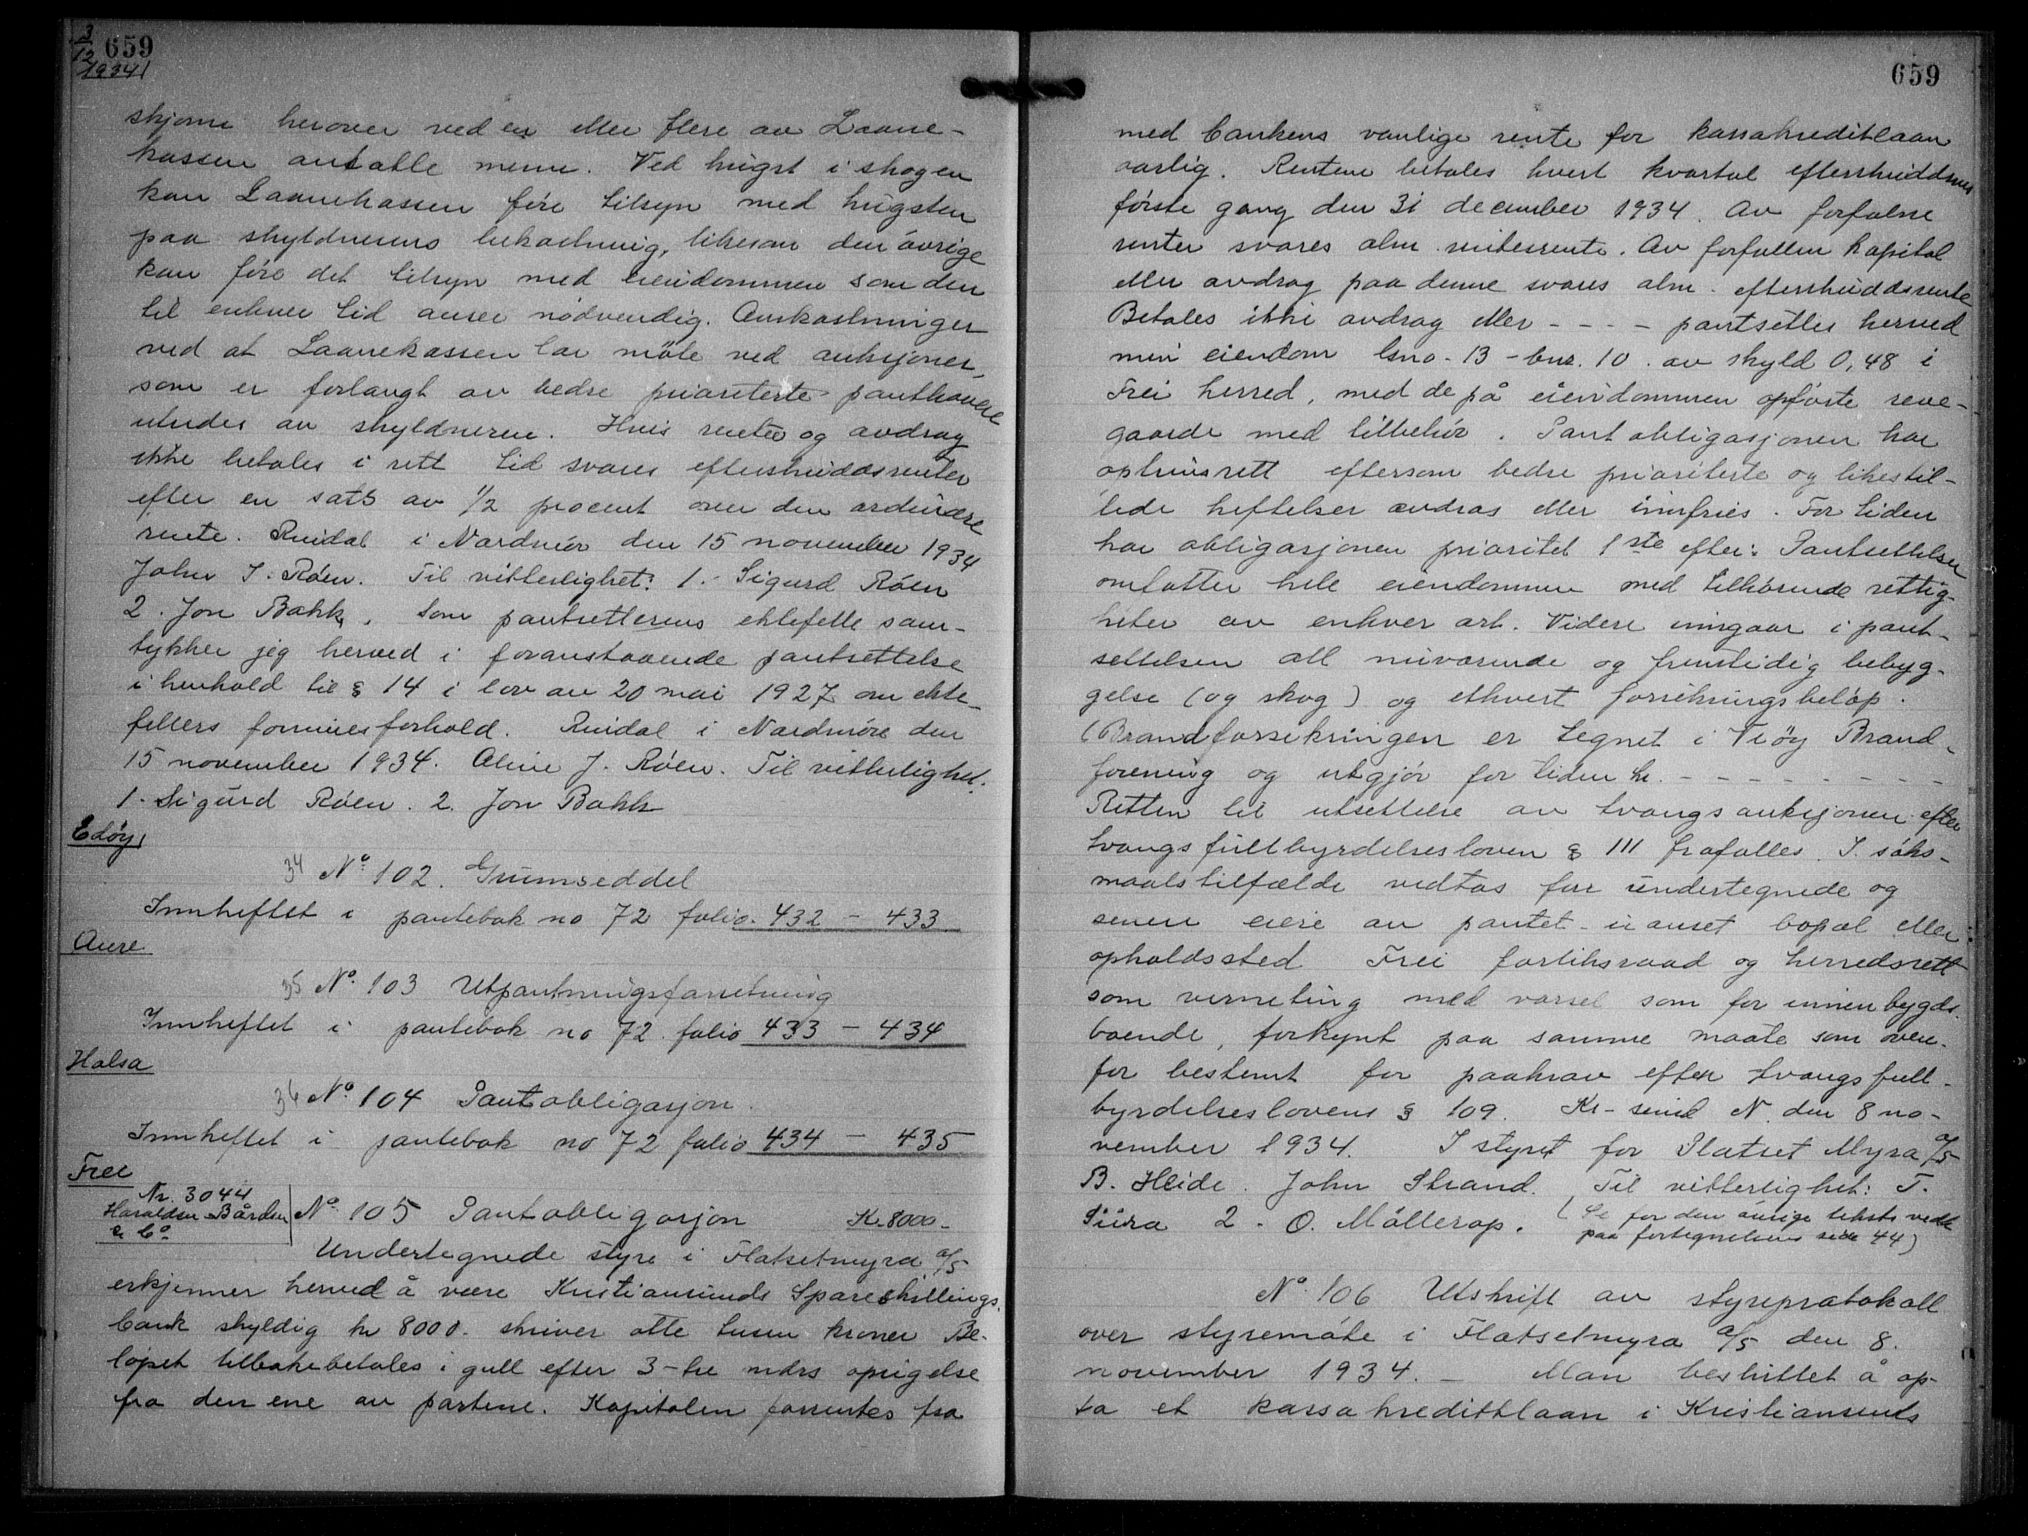 3/12 1934
659
skjønn herover ved en eller flere av Laane-
kassen antatte menn. Ved hugst i skogen
kan Laanekassen føre tilsyn med hugsten
paa skyldnerens bekostning, likesom den øvrige
kan føre det tilsyn med eiendommen som den
til enhver tid anser nødvendig. Omkostninger
ved at Laanekassen lar møte ved auksjoner,
som er forlangt av bedre prioriterte panthavere
utredes av skyldneren. Hvis renter og avdrag
ikke betales i rett tid svares efterskuddsrenter
efter en sats av 1/2 procent over den ordinære
rente. Rindal i Nordmør den 15 november 1934
John J. Røen. Til vitterlighet: 1. Sigurd Røen
2. Jon Bakk. Som pantsetterens ektefelle sam-
tykker jeg herved i foranstaaende pantsettelse
i henhold til § 14 i lov av 20 mai 1927 om ekte-
fellers formuesforhold. Rindal i Nordmøre den
15 november 1934. Aline J. Røen. Til vitterlighet:
1. Sigurd Røen. 2. Jon Bakk
Edøy
34 No. 102. Grunnseddel
Innheftet i pantebok no 72 folio. 432 - 433
Aure
35 No. 103 Utpantningsforretning
Innheftet i pantebok no 72 folio 433 - 434
Halsa
36 No. 104 Pantobligasjon.
Innheftet i pantebok no 72 folio 434 - 435
Frei
Nr. 3044
Haraldsen Bårdsen
& Co
No. 105 Pantobligasjon Kr. 8000.-
Undertegnede styre i Flatsetmyra a/s
erkjenner herved å være Kristiansunds Spareskillings-
bank skyldig kr 8000.- skriver otte tusen kroner Be-
løpet tilbakebetales i gull efter 3-tre mdrs opsigelse
fra den ene av partene. Kapitalen forrentes fra
659
med bankens vanlige rente for kassakredittlaan
aarlig. Rentene betales hvert kvartal efterskuddsvis
første gang den 31 december 1934. Av forfalne
renter svares alm. rentesrente. Av forfallen kapital
eller avdrag paa denne svares alm. efterskuddsrente
Betales ikke avdrag eller - - - - pantsettes herved
min eiendom Gno. 13 - bnr. 10 av skyld 0,48 i
Frei herred, med de på eiendommen opførte reve-
gaarde med tilbehør. Pantobligasjonen har
oprinsrett eftersom bedre prioriterte og likestil-
lede heftelser avdras eller innfries. For tiden
har obligasjonen prioritet 1ste efter: Pantsettelsen
omfatter hele eiendommen med tilhørende rettig-
heter av enhver art. Videre inngaar i pant-
settelsen all nuværende og fremtidig bebyg-
gelse (og skog) og ethvert forsikringsbeløp.
(Brandforsikringen er tegnet i Frøy Brand-
forening og utgjør for tiden kr. - - - - - - - -
Retten til utsettelse av tvangsauksjonen efter
tvangsfullbyrdelsesloven § 111 frafalles. I søks-
maalstilfælde vedtas for undertegnede og
senere eiere av pantet - uanset bopæl eller
opholdssted Frei forliksraad og herredsrett
som verneting med varsel som for innenbygds-
boende, forkynt paa samme maate som oven-
for bestemt for paakrav efter tvangsfull-
byrdelseslovens § 109. Kr-sund N. den 8 no-
vember 1934. I styret for Flatset Myra a/s
B. Heide. John Strand. Til vitterlighet: T.
Siira 2. O. Møllerop. (Se for den øvrige teksts vedk
paa fortegnelsens side 44)
No. 106 Utskrift av styreprotokoll
over styremøte i Flatsetmyra a/s den 8.
november 1934. - Man besluttet å op-
ta et kassakredittlaan i Kristiansunds